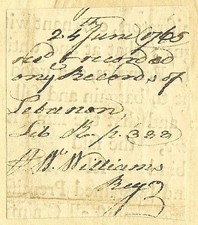 24th June 1765
Recd & recorded
on ye Records of
Lebanon
Lib Ro. p. 333
Wm Williams
Regr